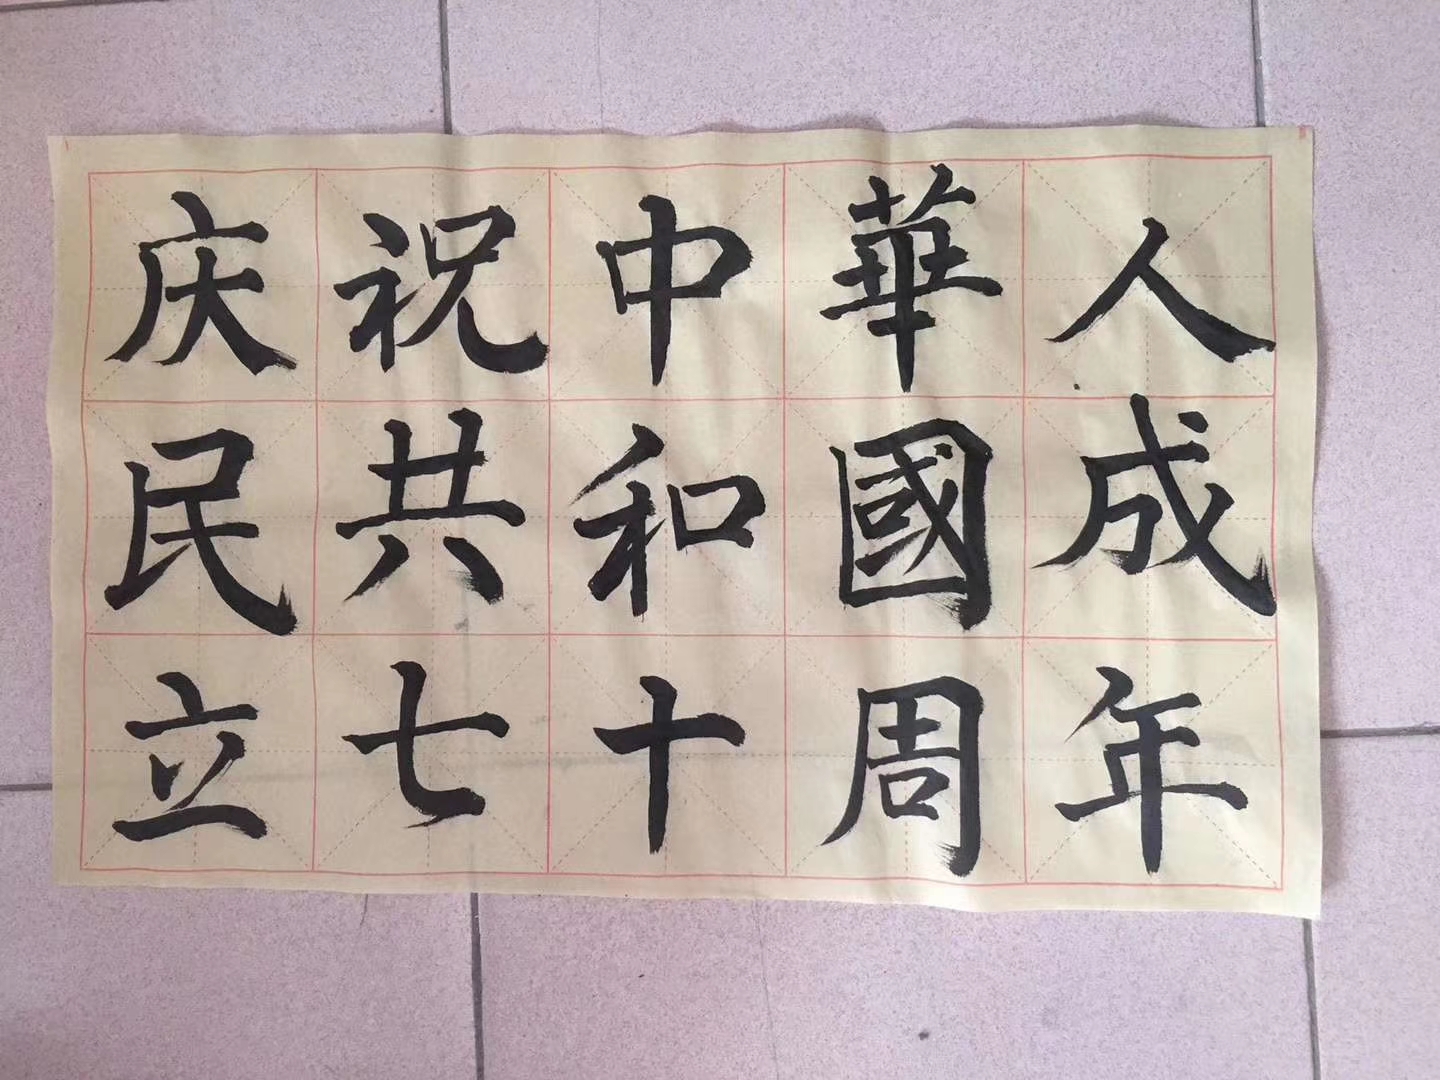 庆祝中華人
民共和國成
立七十周年